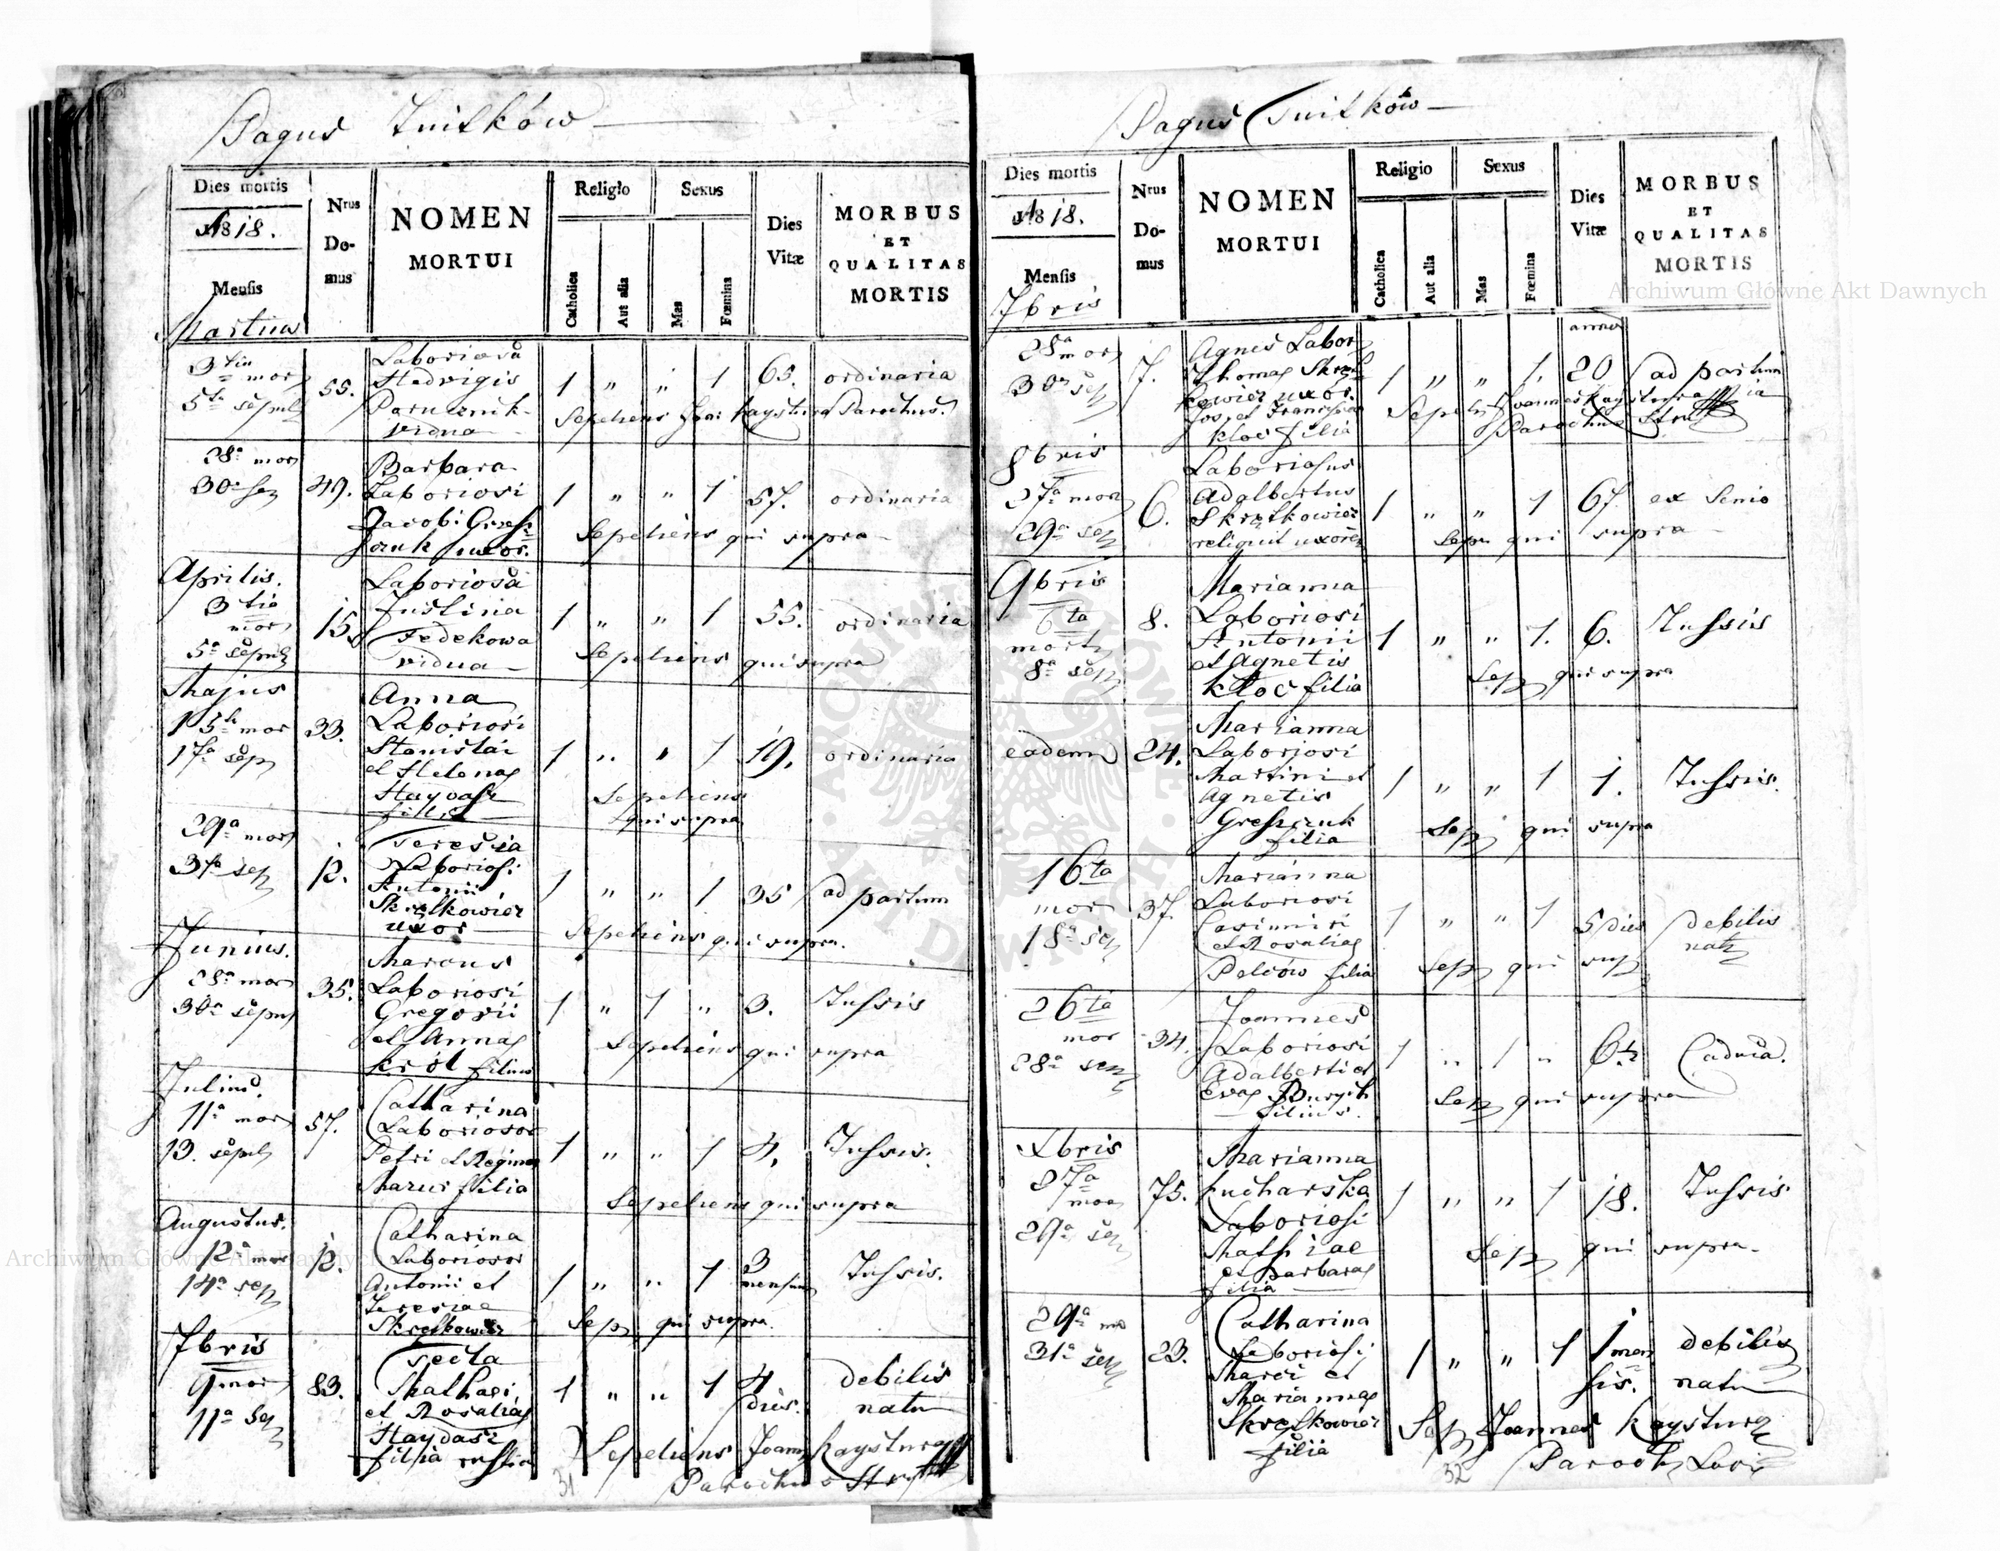 Pagus Znitków
Dies mortis
1818.
Mensis
Martius
Nrus
Do-
mus
NOMEN
MORTUI
Religio
Catholica
Aut alia
Sexus
Mas
Fœmina
Dies
Vitæ
MORBUS
ET
QUALITAS
MORTIS
3tia mor
5ta sepul
55.
Laboriosa
Hedvigis
vidua
1 " " 1 65. ordinaria
Sepeliens Parochus.
28a mor
30a sep
49.
Barbara
Laboriosi
Jacobi
uxor.
1 " " 1 57. ordinaria
Sepeliens qui supra
Aprilis.
3tia
mor
5a sepul
15
Laboriosa
Justina
Fedekowa
vidua
1 " " 1 55. ordinaria
Sepeliens qui supra
Majus
15ta mor
17a sep
33.
Anna
Laboriosi
Stanislai
et Helenae
filia
1 " " 1 19. ordinaria
Sepeliens
qui supra
29a mor
31a sep
12.
Teresia
Laboriosi
Antonii
Skrętkowicz
uxor
1 " " 1 35 ad partum
Sepeliens qui supra.
Junius.
28a mor
30a sepul
35.
Marcus
Laboriosi
Gregorii
et Annae
Król filius
1 " 1 " 3. Tussis
Sepeliens qui supra
Julius.
11a mor
13. sepul
57.
Catharina
Laboriosor
Petri et Reginae
Mazur filia
1 " " 1 4. Tussis.
Sepeliens qui supra
Augustus.
12a mor
14a sep
12.
Catharina
Laboriosor
Antonii et
Teresiae
Skrętkowicz
1 " " 1 3
mensium Tussis.
Sep qui supra.
7bris
9 mor
11a Sep
83.
Tecla
Mathaei
et Rosaliae
filia
1 " " 1 4
dies. debilis
natu
Sepeliens Joann Kaystura
Parochus
31
Pagus Tnitków
Dies mortis
1818.
Mensis
7bris
Nrus
Do-
mus
NOMEN
MORTUI
Religio
Catholica
Aut alia
Sexus
Mas
Fœmina
Dies
Vitæ
MORBUS
ET
QUALITAS
MORTIS
28a mor
30a sep
7.
Agnes Labor
Thomae Skręt
kowicz uxor.
Jos. et Francisca
Kloc filia
anno
1 " " 1. 20 ad partum
Sepel Joannes Kaystura
Parochus
8bris
27a mor
29a sep
6.
Laboriosus
Adalbertus
Skrętkowicz
reliquit uxorem
1 " " 1 67 ex senio
Sepe qui supra
9bris
6ta
mort
8a sep
8.
Marianna
Laboriosi
Antonii
et Agnetis
Kloc filia
1 " " 1. 6. Tussis
Sep qui supra
eadem
24.
Marianna
Laboriosi
Martini et
Agnetis
Greszczuk
filia
1 " " 1 1. Tussis.
Sep qui supra
16ta
mor
18a sep
37.
Marianna
Laboriosi
Casimiri
et Rosaliae
Pelców filia
1 " " 1 5 dies debilis
natu
Sep qui sup
26ta
mor
28a sep
34.
Joannes
Laboriosi
Adalberti et
Evae
filius.
1 " 1 " 6 1/2 Caduca.
Sep qui supra
Xbris
27a
mor
29a sep
75.
Marianna
Kucharska
Laboriosi
Mathiae
et Barbarae
filia
1 " " 1 18. Tussis
Sep qui supra.
29a mo
31a sep
23.
Catharina
Laboriosi
Marci et
Mariannae
Skrętkowicz
filia
1 " " 1 1 men
sis. debilis
natu
Sep Joannes Kaystura
Paroch
32
Archiwum Główne Akt Dawnych
Archiwum Główne Akt Dawnych
ARCHIWUM GŁÓWNE
AKT DAWNYCH